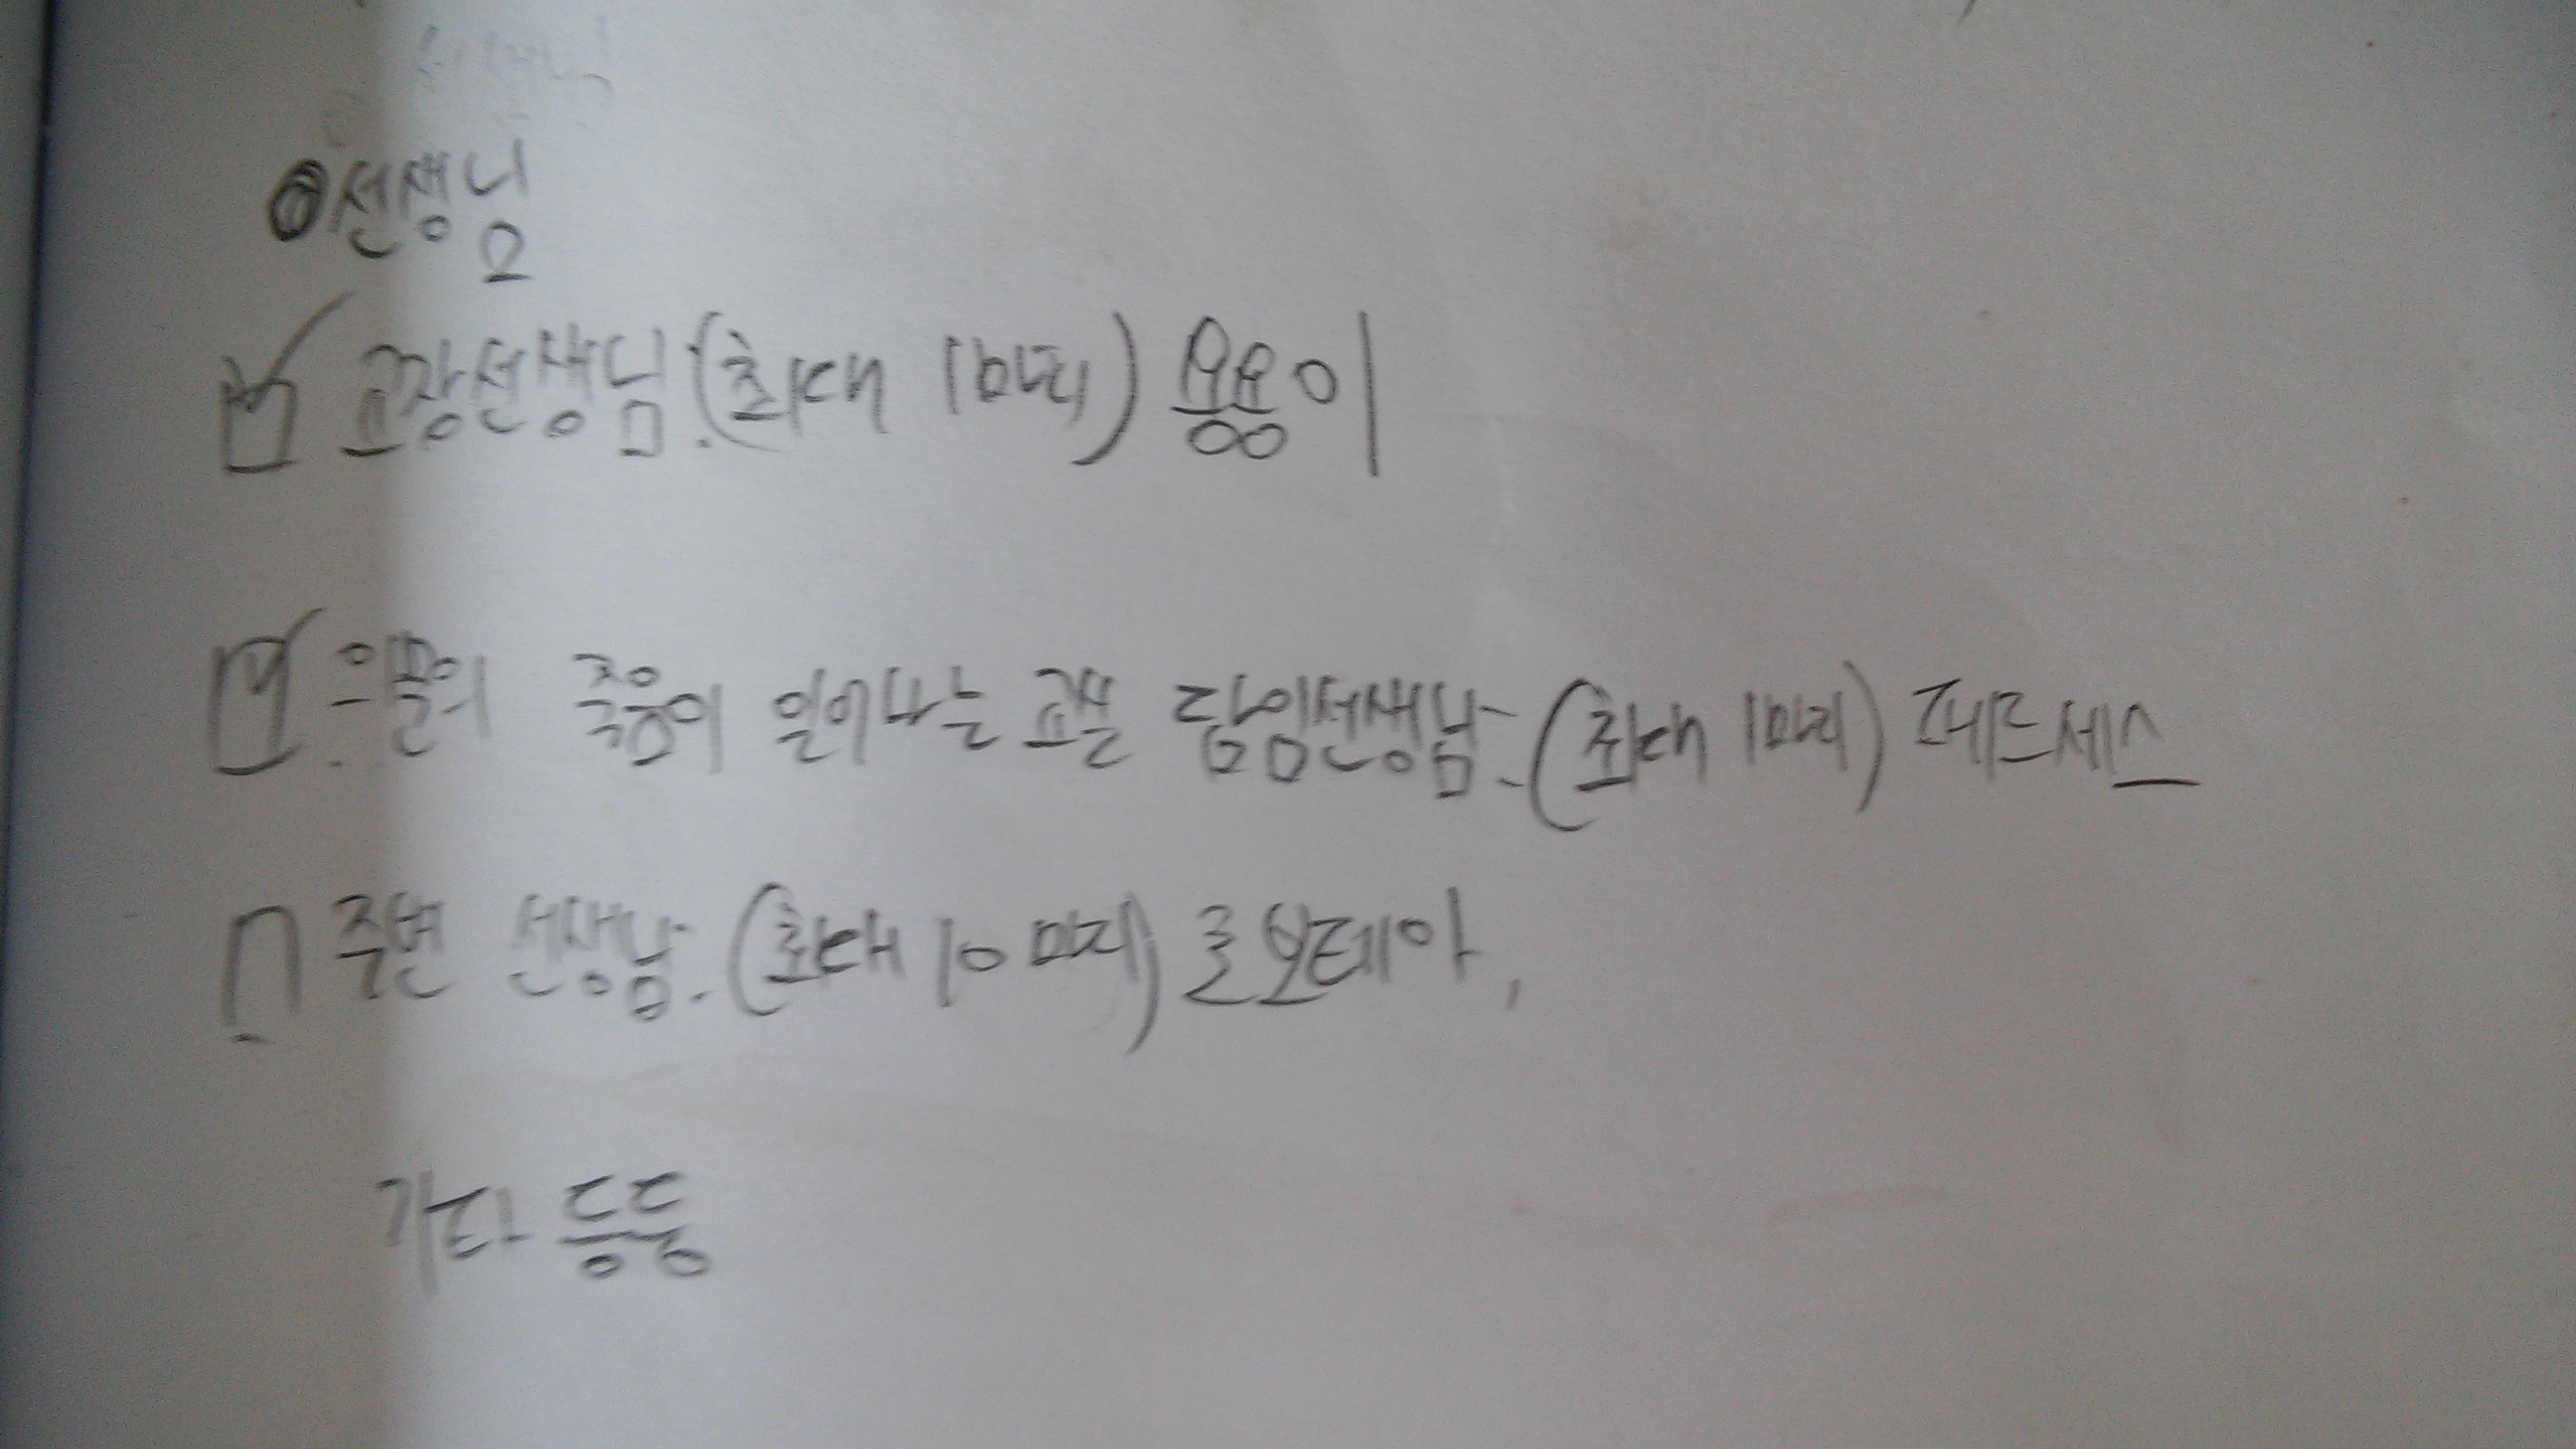 선생님
☑ 교장선생님.(최대 1마리) 용용이
☑. 의문의 죽음이 일어나는 교실 담임선생님.(최대 1마리) 페르세스
☐ 주변 선생님.(최대 10마리) 로보테아,
기타 등등